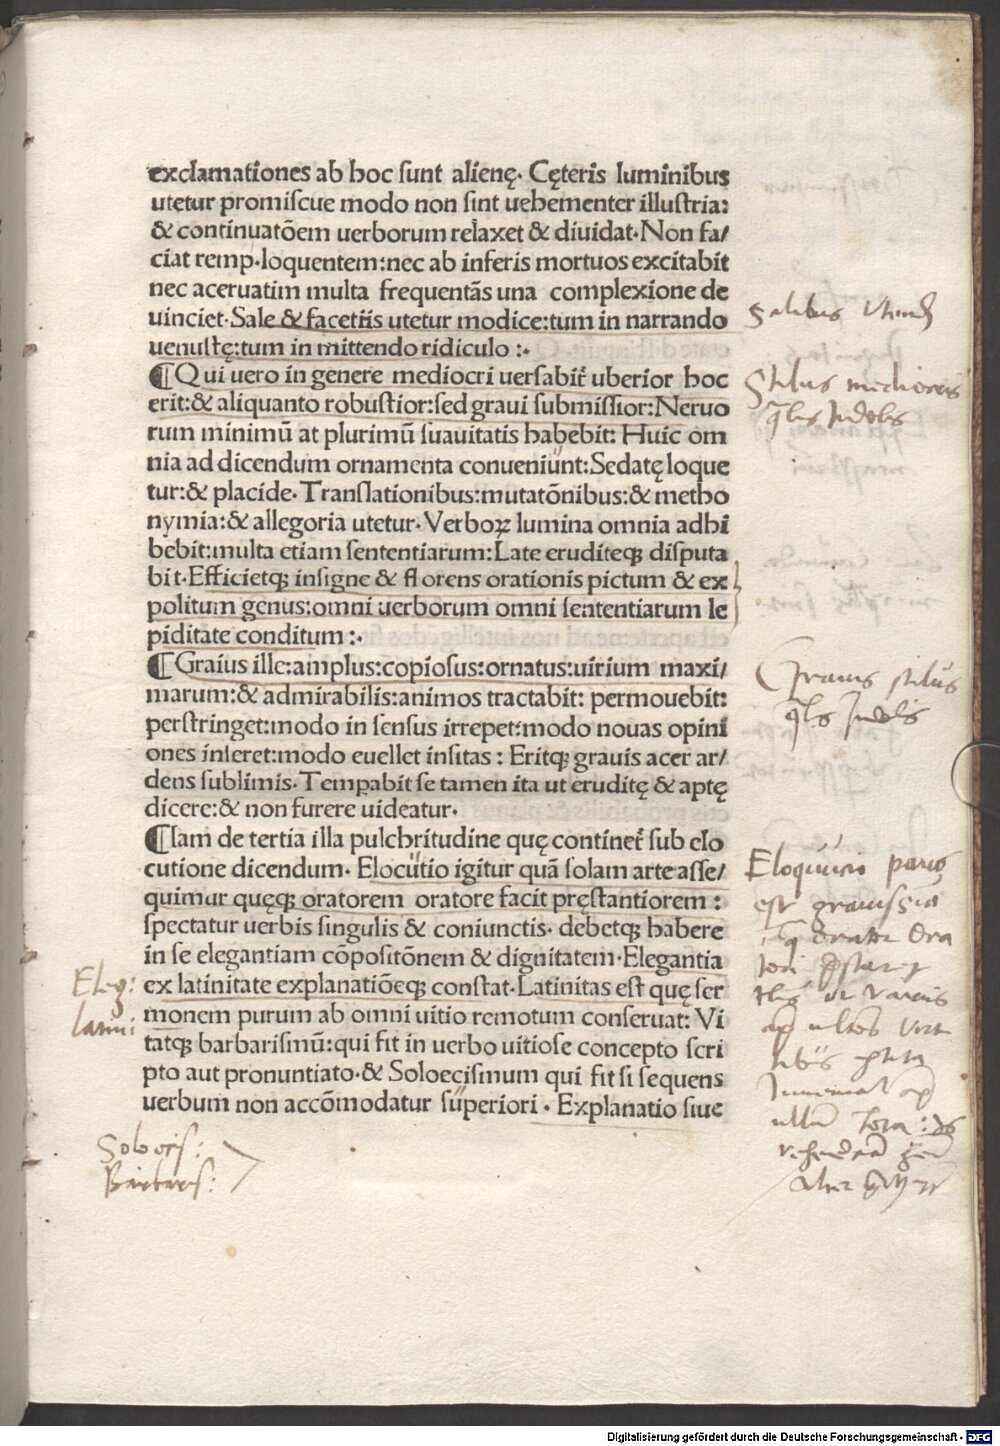 exclamationes ab hoc sunt alienę. Cęteris luminibus
utetur promiscue modo non sint uehementer illustria:
& continuatõem uerborum relaxet & diuidat. Non fa/
ciat remp. loquentem: nec ab inferis mortuos excitabit
nec aceruatim multa frequentãs una complexione de
uinciet. Sale & facetiis utetur modice: tum in narrando
uenustę: tum in mittendo ridiculo :.
Salibus
¶ Qui uero in genere mediocri uersabit̃ uberior hoc
erit: & aliquanto robustior: sed graui submissior: Neruo
rum minimũ at plurimũ suauitatis habebit: Huic om
nia ad dicendum ornamenta conueniunt: Sedatę loque
tur: & placide. Translationibus: mutatõnibus: & metho
nymia: & allegoria utetur. Verboꝝ lumina omnia adhi
bebit: multa etiam sententiarum: Late eruditeqꝫ disputa
bit. Efficietqꝫ insigne & florens orationis pictum & ex
politum genus: omni uerborum omni sententiarum le
piditate conditum :.
Stilus mediocris
¶ Grauis ille: amplus: copiosus: ornatus: uirium maxi/
marum: & admirabilis: animos tractabit: permouebit:
perstringet: modo in sensus irrepet: modo nouas opini
ones inseret: modo euellet insitas : Eritqꝫ grauis acer ar/
dens sublimis. Tempabit se tamen ita ut eruditę & aptę
dicere: & non furere uideatur.
Grauis stilus
¶ Iam de tertia illa pulchritudine quę continet̃ sub elo
cutione dicendum. Elocutio igitur quã solam arte asse/
quimur quęqꝫ oratorem oratore facit pręstantiorem :
spectatur uerbis singulis & coniunctis. debetqꝫ habere
in se elegantiam cõpositõnem & dignitatem. Elegantia
ex latinitate explanatiõeqꝫ constat. Latinitas est quę ser
monem purum ab omni uitio remotum conseruat: Vi
tatqꝫ barbarismũ: qui fit in uerbo uitiose concepto scri
pto aut pronuntiato. & Soloecismum qui fit si sequens
uerbum non accõmodatur superiori . Explanatio siue
Eleg:
latini
Soloecis:
Barbaris:
Digitalisierung gefördert durch die Deutsche Forschungsgemeinschaft - DFG